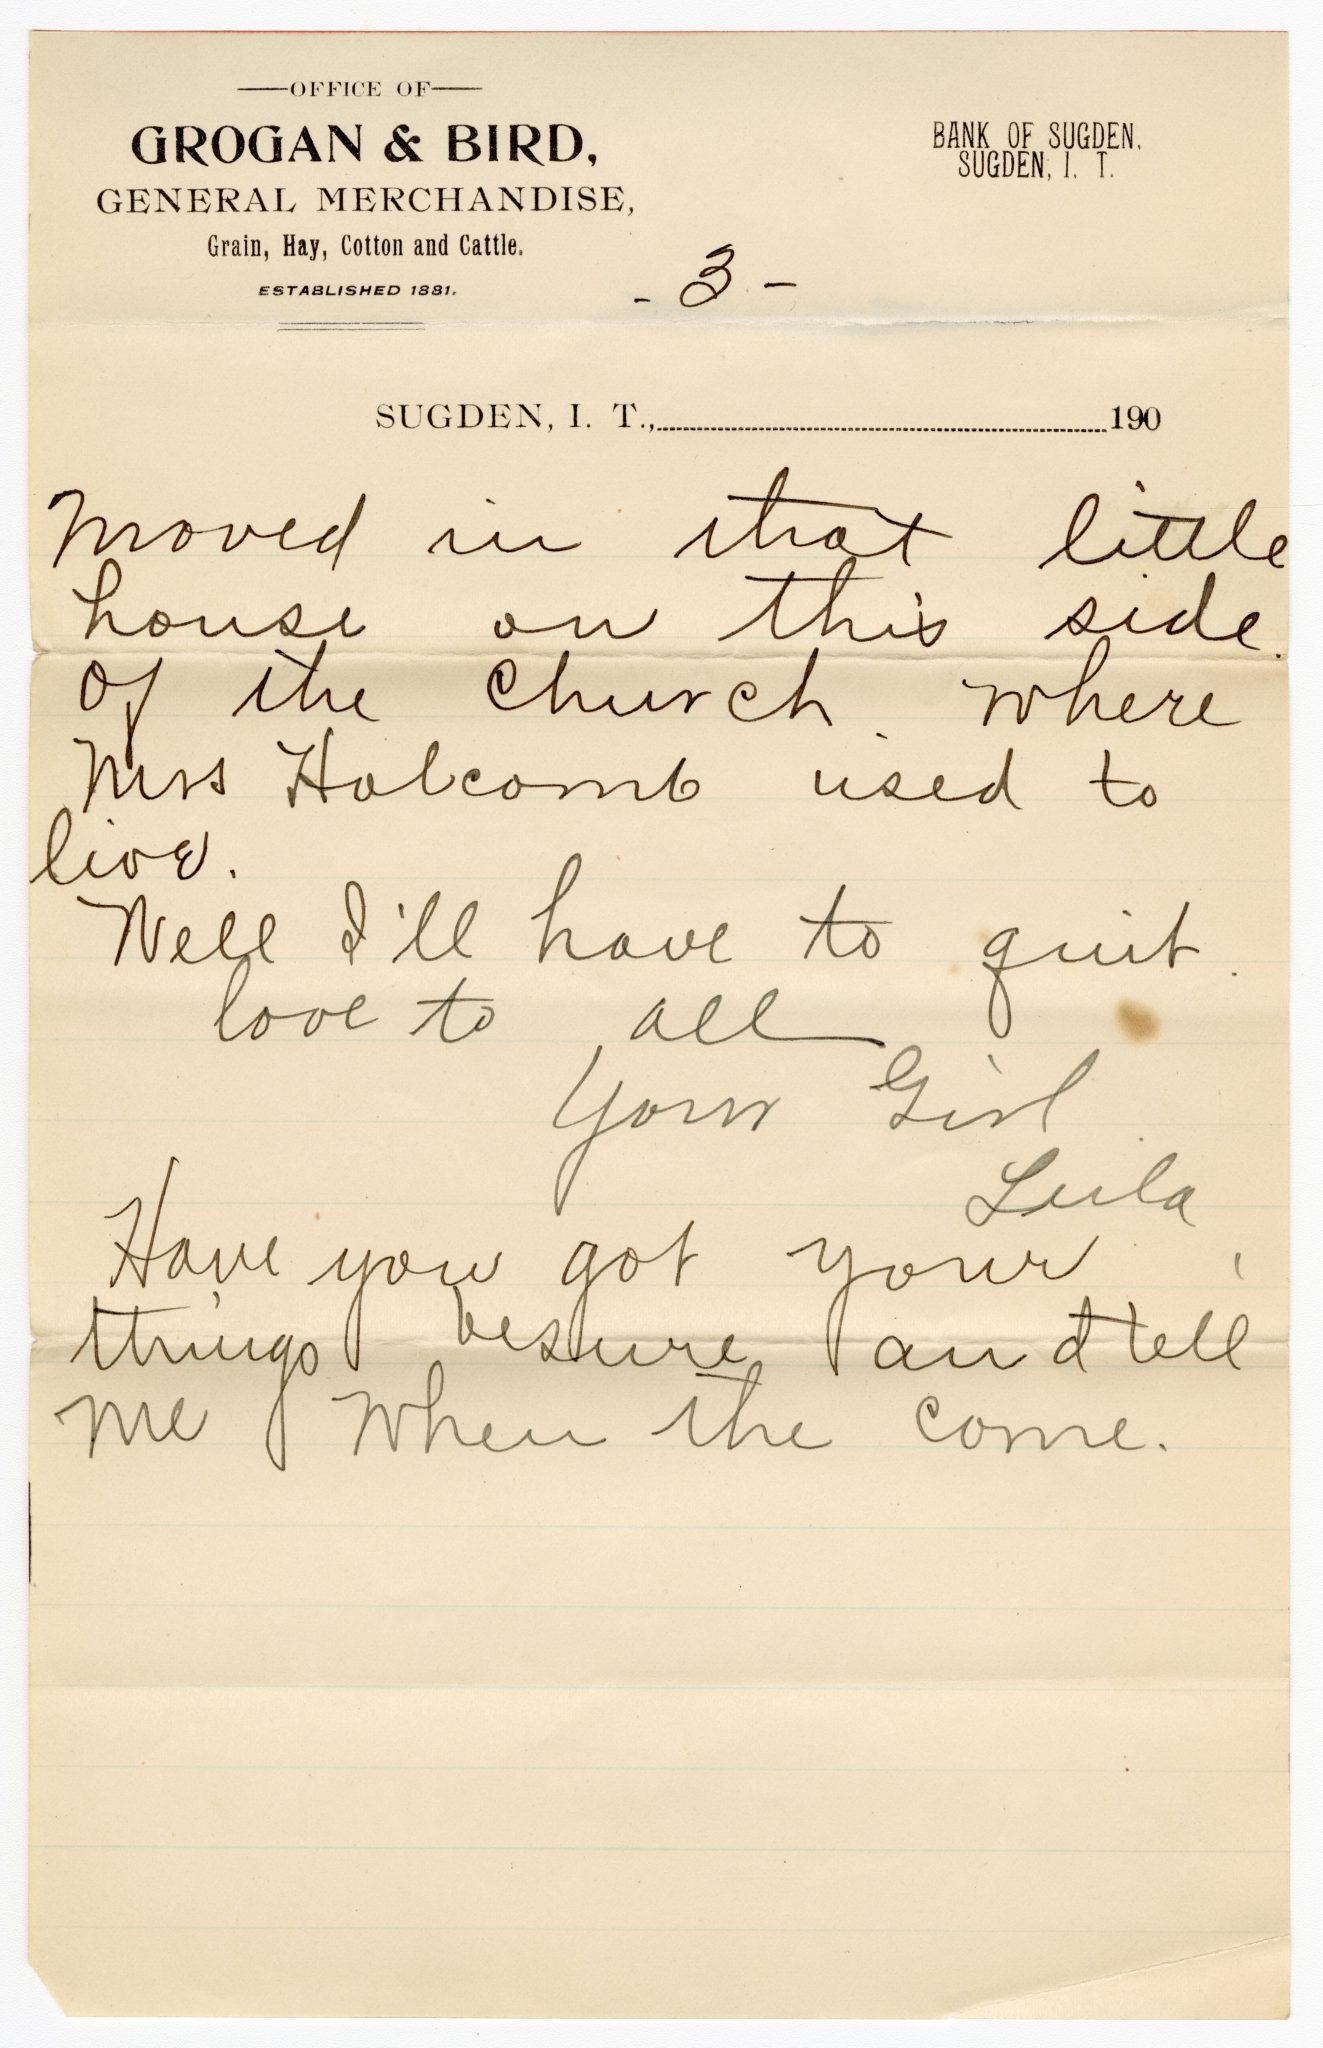 OFFICE OF
GROGAN & BIRD,
GENERAL MERCHANDISE,
Grain, Hay, Cotton and Cattle.
ESTABLISHED 1881.
BANK OF SUGDEN.
SUGDEN, I. T.
- 3 -
SUGDEN, I. T., 190
Moved in that little
house on this side.
of the church. where
Mrs Holcomb used to
live.
Well I'll have to quit.
love to all
Your Girl
Leila
Have you got your
things besure and tell
me when the come.